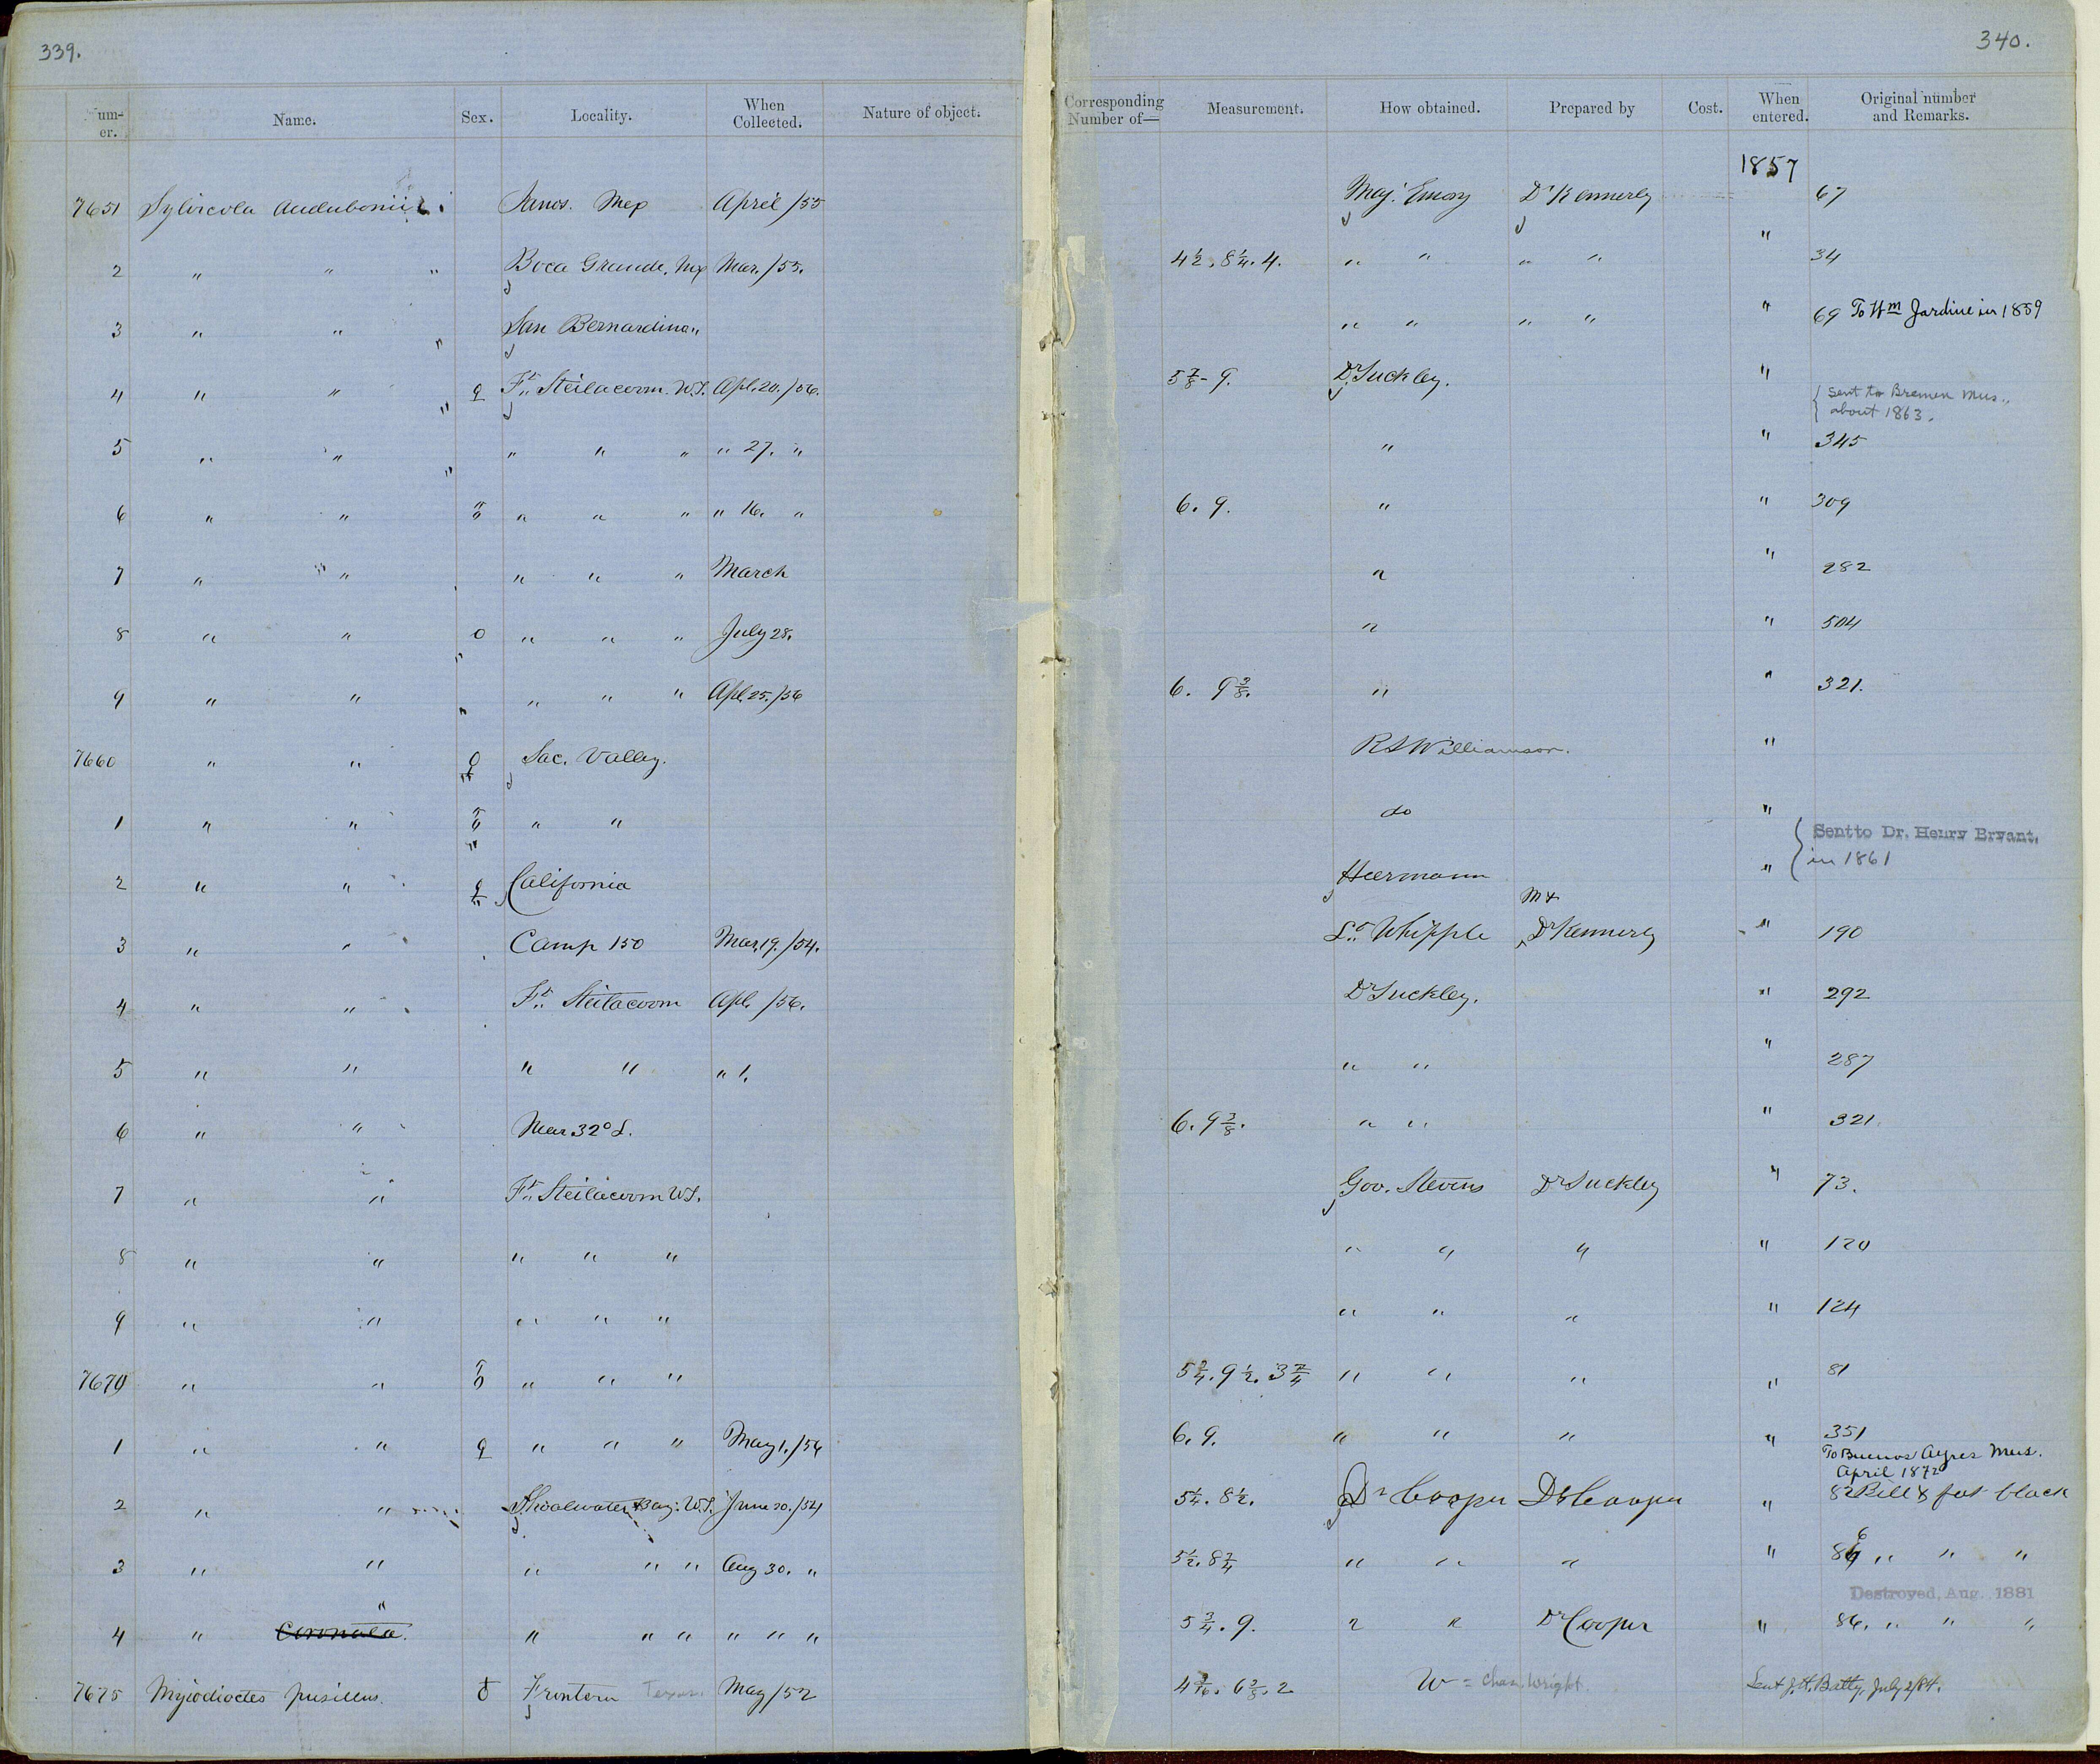 339.
340.
um-er. Name. Sex. Locality. When Collected. Nature of object. Corresponding Number of— Measurement. How obtained. Prepared by Cost. When entered. Original number and Remarks.
1857
7651 Sylvicola Audubonii Janos. Mex April /55 Maj. Emory Dr Kennerly 67
2 " " " Boca Grande. Mex Mar. /55. 4 1/2. 8 1/4. 4. " " " " " 34
3 " " " San Bernardino " " " " " " 69 To Wm Jardine in 1859
4 " " " ♀ Ft. Steilacoom. W.T. Apl. 20. /56. 5 7/8 - 9. Dr Suckley. " { Sent to Bremen Mus., about 1863.
5 " " " " " " " 27. " " " 345
6 " " " " " " " 16. " 6. 9. " " 309
7 " " " " " March " " 282
8 " " O " " " July 28. " " 504
9 " " " " " " Apl. 25. /56 6. 9 3/8. " " 321.
7660 " " ♀ Sac. Valley. R S Williamson. "
1 " " " " " do " { Sent to Dr. Henry Bryant. in 1861
2 " " ♀ California Heermann "
3 " " Camp 150 Mar. 19. /54. Lt. Whipple M & Dr Kennerly " 190
4 " " Ft. Steilacoom Apl. /56. Dr Suckley. " 292
5 " " " " " 1. " " " 287
6 " " Near 32° L. 6. 9 3/8. " " " 321.
7 " " Ft. Steilacoom W.T. Gov. Stevens Dr Suckley " 73.
8 " " " " " " " " " 120
9 " " " " " " " " " 124
7670 " " " " " 5 3/4. 9 1/2. 3 3/4 " " " " 81
1 " " ♀ " " " May 1. /56 6. 9. " " " " 351
To Buenos Ayres Mus. April 1872
2 " " Shoalwater Bay. W.T. June 20. /54 5 1/4. 8 1/2. Dr Cooper Dr Cooper " 82 Bill & feet black
3 " " " " " Aug 30. " 5 1/2. 8 3/4 " " " " 86 " " "
Destroyed, Aug. 1881
4 " " Coronata. " " " " " " 5 3/4. 9. " " Dr Cooper " 86. " " "
7675 Myiodioctes pusillus. ♂ Frontera Texas May /52 W = Chas. Wright. Sent J. H. Batty, July 2/84.